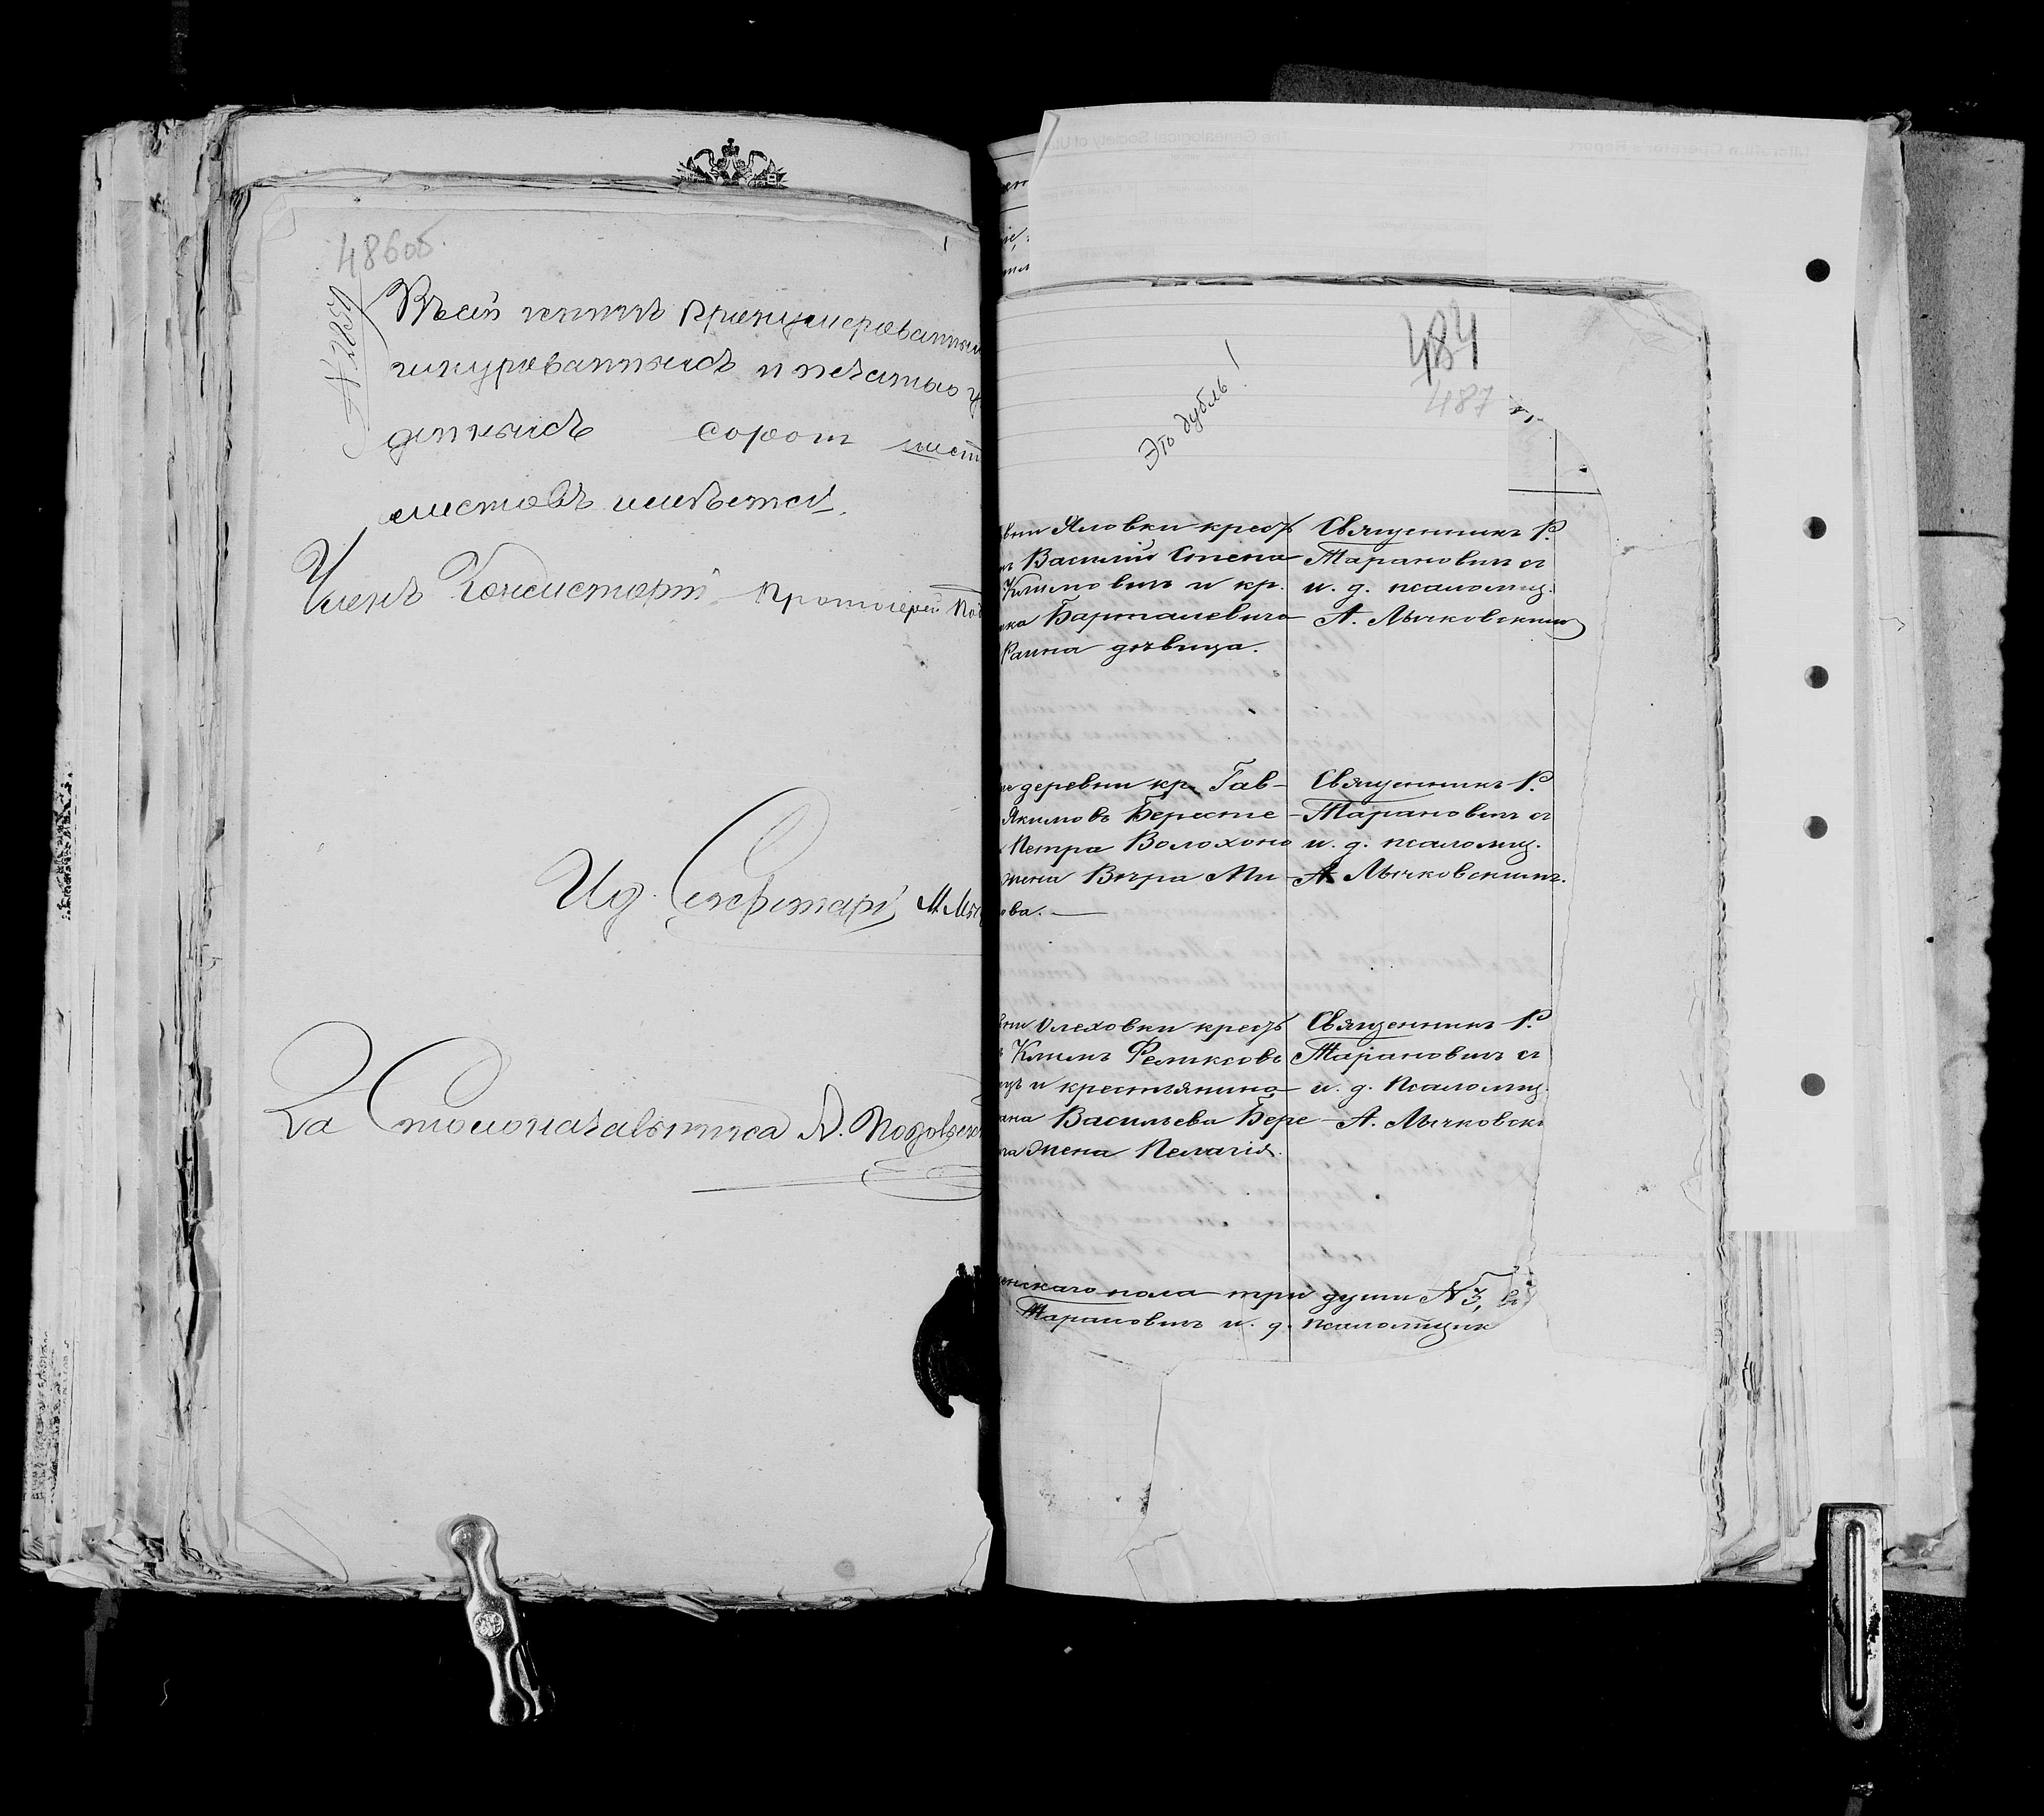 486об.
№ 2859
Въ сей книгѣ пронумерованны
шнурованныхъ и печатью
денныхъ сорок шест
листовъ имѣется.
Членъ Консисторіи Протоіерей
И.д. Секретаря М.
За Столоначальника А.
484
487
Это дубль!
вни Яловки крест
Василій Степа
Климовичъ и кр.
Барталевича
дѣвица.
Священникъ Р.
Тарановичъ съ
и. д. псаломщ.
А. Лычковскимъ
деревни кр. Гав-
Якимовъ Бересте
Петра Волохоно
жена Вѣра Ми-
ова.
Священникъ Р.
Тарановичъ съ
и. д. псаломщ.
А. Лычковскимъ.
вни Олеховки крест
Климъ Феликсовъ
и крестьянина
Васильева Бере-
жена Пелагія.
Священникъ Р.
Тарановичъ съ
и. д. Псаломщ.
А. Лычковск
енскаго пола три души № 3,
Тарановичъ и. д. псаломщик